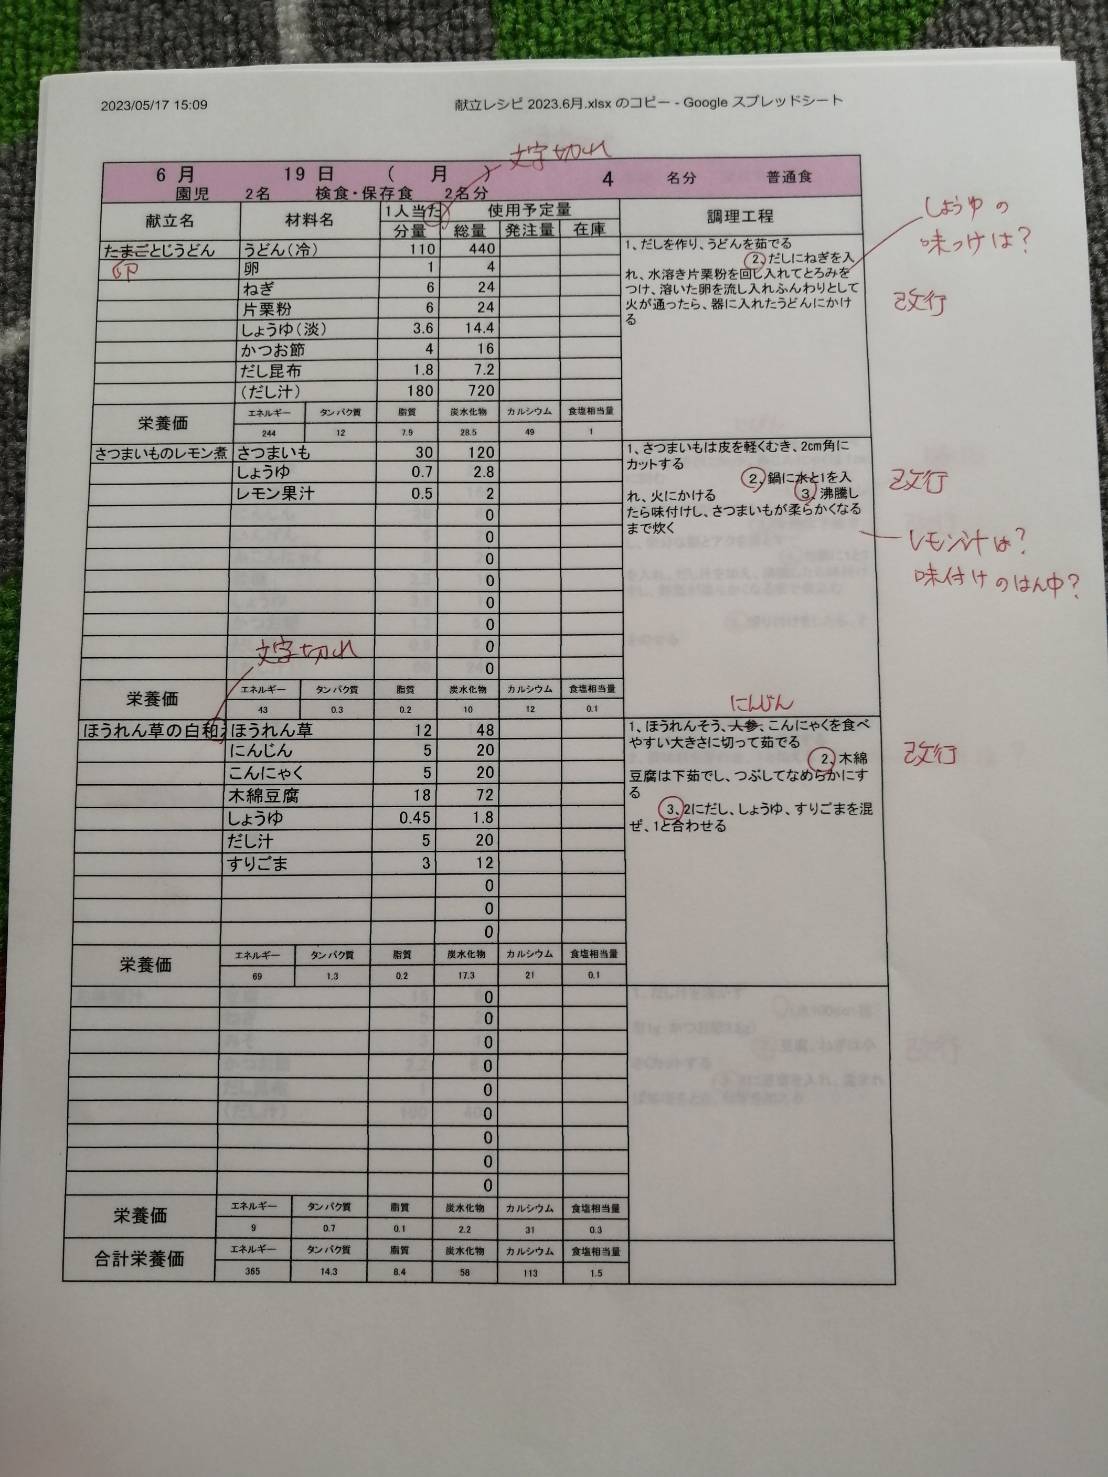 2023/05/17 15:09 献立レシピ 2023.6月.xlsx のコピー - Google スプレッドシート
文字切れ
6 月 19 日 ( 月 ) 4 名分 普通食
園児 2名 検食・保存食 2名分
献立名 材料名 1人当た 使用予定量 調理工程
分量 総量 発注量 在庫
しょうゆの
味つけは?
たまごとじうどん うどん(冷) 110 440
卵 卵 1 4
ねぎ 6 24
片栗粉 6 24
しょうゆ(淡) 3.6 14.4
かつお節 4 16
だし昆布 1.8 7.2
(だし汁) 180 720
1、だしを作り、うどんを茹でる
2、だしにねぎを入
れ、水溶き片栗粉を回し入れてとろみを
つけ、溶いた卵を流し入れふんわりとして
火が通ったら、器に入れたうどんにかけ
る
改行
栄養価 エネルギー タンパク質 脂質 炭水化物 カルシウム 食塩相当量
244 12 7.9 28.5 49 1
さつまいものレモン煮 さつまいも 30 120
しょうゆ 0.7 2.8
レモン果汁 0.5 2
0
0
0
0
0
0
0
0
1、さつまいもは皮を軽くむき、2cm角に
カットする
2、鍋に水と1を入
れ、火にかける 3、沸騰し
たら味付けし、さつまいもが柔らかくなる
まで炊く
改行
レモン汁は?
味付けのはん中?
文字切れ
栄養価 エネルギー タンパク質 脂質 炭水化物 カルシウム 食塩相当量
43 0.3 0.2 10 12 0.1
にんじん
ほうれん草の白和え ほうれん草 12 48
にんじん 5 20
こんにゃく 5 20
木綿豆腐 18 72
しょうゆ 0.45 1.8
だし汁 5 20
すりごま 3 12
0
0
0
1、ほうれんそう、人参、こんにゃくを食べ
やすい大きさに切って茹でる
2、木綿
豆腐は下茹でし、つぶしてなめらかにす
る
3、2にだし、しょうゆ、すりごまを混
ぜ、1と合わせる
改行
栄養価 エネルギー タンパク質 脂質 炭水化物 カルシウム 食塩相当量
69 1.3 0.2 17.3 21 0.1
0
0
0
0
0
0
0
0
0
栄養価 エネルギー タンパク質 脂質 炭水化物 カルシウム 食塩相当量
9 0.7 0.1 2.2 31 0.3
合計栄養価 エネルギー タンパク質 脂質 炭水化物 カルシウム 食塩相当量
365 14.3 8.4 58 113 1.5